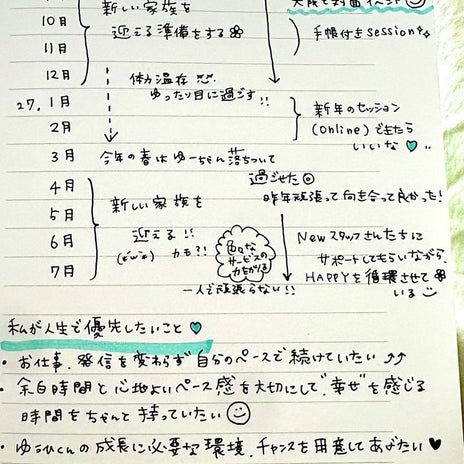 新しい家族を
10月 迎える準備をする
手帳付きsession
11月
12月 体力温存
ゆったり目に過ごす!!
27.1月 新年のセッション
2月 (Online)できたら
いいな
3月 今年の春はゆーちゃん落ちついて
過ごせた
4月 昨年頑張って向き合って良かった!
新しい家族を
5月
迎える!! Newスタッフさんたちに
6月 色々な
サービスの サポートしてもらいながら、
(*´꒳`*) かも?! 力をかりる
7月 HAPPYを循環させて
いる
一人で頑張らない!!
私が人生で優先したいこと
・お仕事、発信を変わらず自分のペースで続けていたい
・余白時間と心地よいペース感を大切にして"幸せ"を感じる
時間をちゃんと持っていたい
・ゆうひくんの成長に必要な環境、チャンスを用意してあげたい